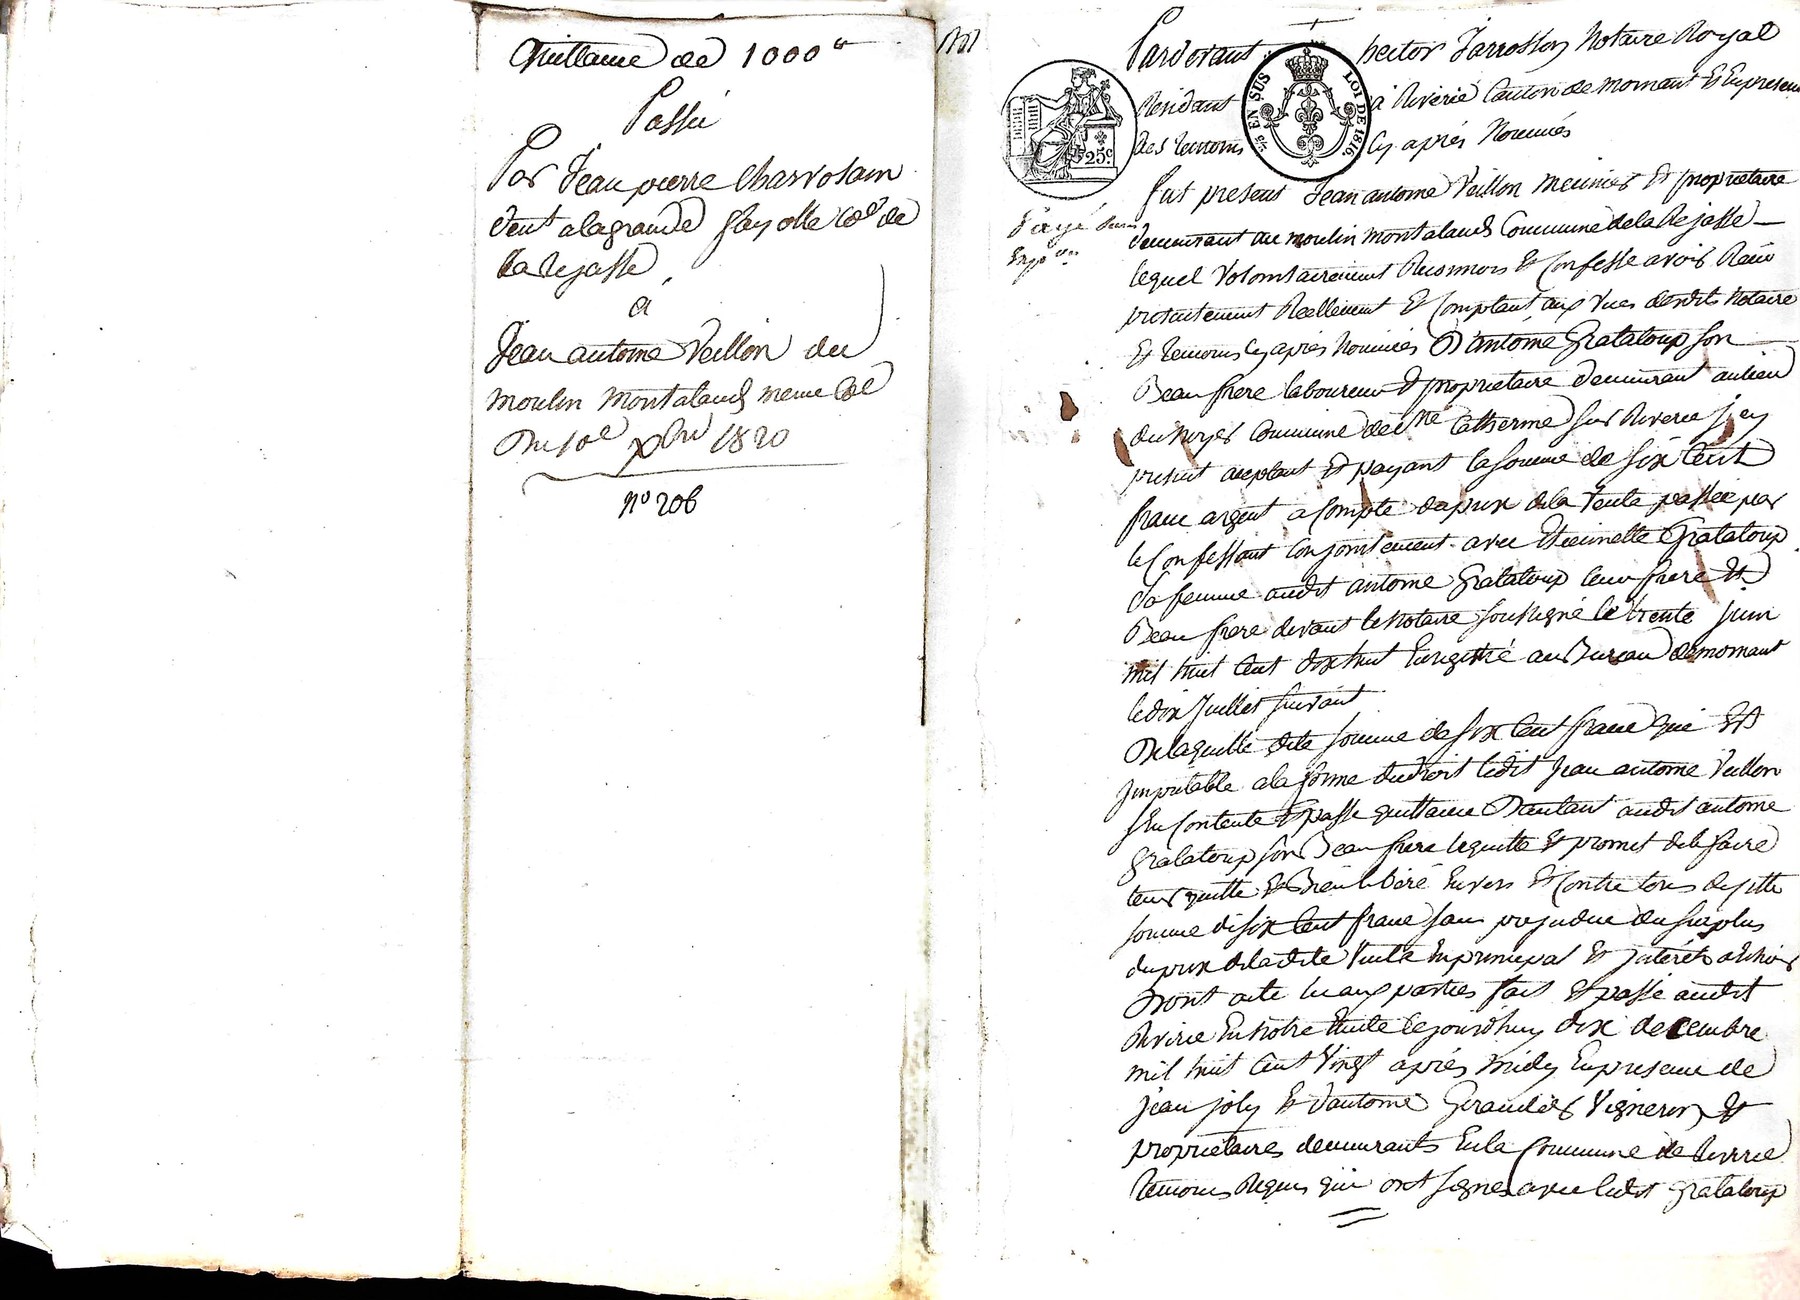 Quittance de 1000 fr
Passée
Par Jean pierre Charvolain
deut a la grande fayolle Cne de
La Rejasse
a
Jean antoine Veillon du
moulin Montaland meme Cne
Du 10e xbre 1820
n° 206
Pardevant hector Jarrosson Notaire Royal
Residant à Riverie Canton de mornant Et En presence
des temoins Cy après Nommés
25 EN SUS
LOI DE 1816.
25c.
fut present Jean antoine Veillon meunier Et proprietaire
demeurant au moulin montaland Commune de la Rejasse
lequel Volontairement Reconnois Et Confesse avoir Reçu
presentement Reellement Et Comptant aux Vues desdits Notaire
Et temoins Cy après Nommés D'antoine Grataloup son
Beau frere laboureur Et proprietaire demeurant au lieu
du Commune de Ste Catherine sur Riverie Jcy
present acceptant Et payant la somme de Six Cent
franc argent a Compte du prix de la Vente passée par
le Confessant Conjointement avec Etiennette Grataloup
Sa femme audit antoine Grataloup leur frere Et
Beau frere devant le Notaire Soussigné le trente juin
mil huit Cent dix huit Enregistré au Bureau de mornant
le dix Juillet suivant
De laquelle dite somme de six Cent franc qui Est
Jmputable a la forme du droit ledit Jean antoine Veillon
s'En Contente Et passe quittance D'autant audit antoine
Grataloup son Beau frere le quitte Et promet de le faire
tenir quitte Et Bien libéré Envers Et Contre tous de
somme de six Cent franc sans prejudice du surplus
du prix de la dite Vente En principal Et Jntéréts a Echoir
Dont acte lu aux parties fait Et passé audit
Riverie En Notre Etude Cejourdhuy dix decembre
mil huit Cent Vingt après midy En presence de
Jean joly Et d'antoine Giraudier Vigneron Et
proprietaires demeurants En la Commune de Riverie
temoins Requis qui ont signés avec ledit Grataloup